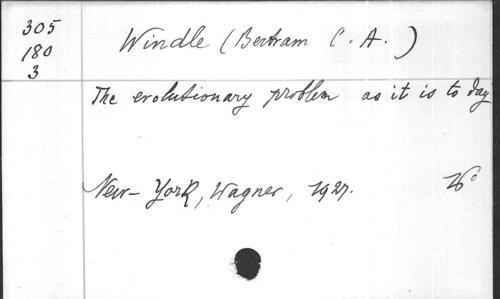 305
180
3
Windle (Bertram C. A.)
The evolutionary problem as it is to day
New-York, Wagner, 1927. 16°